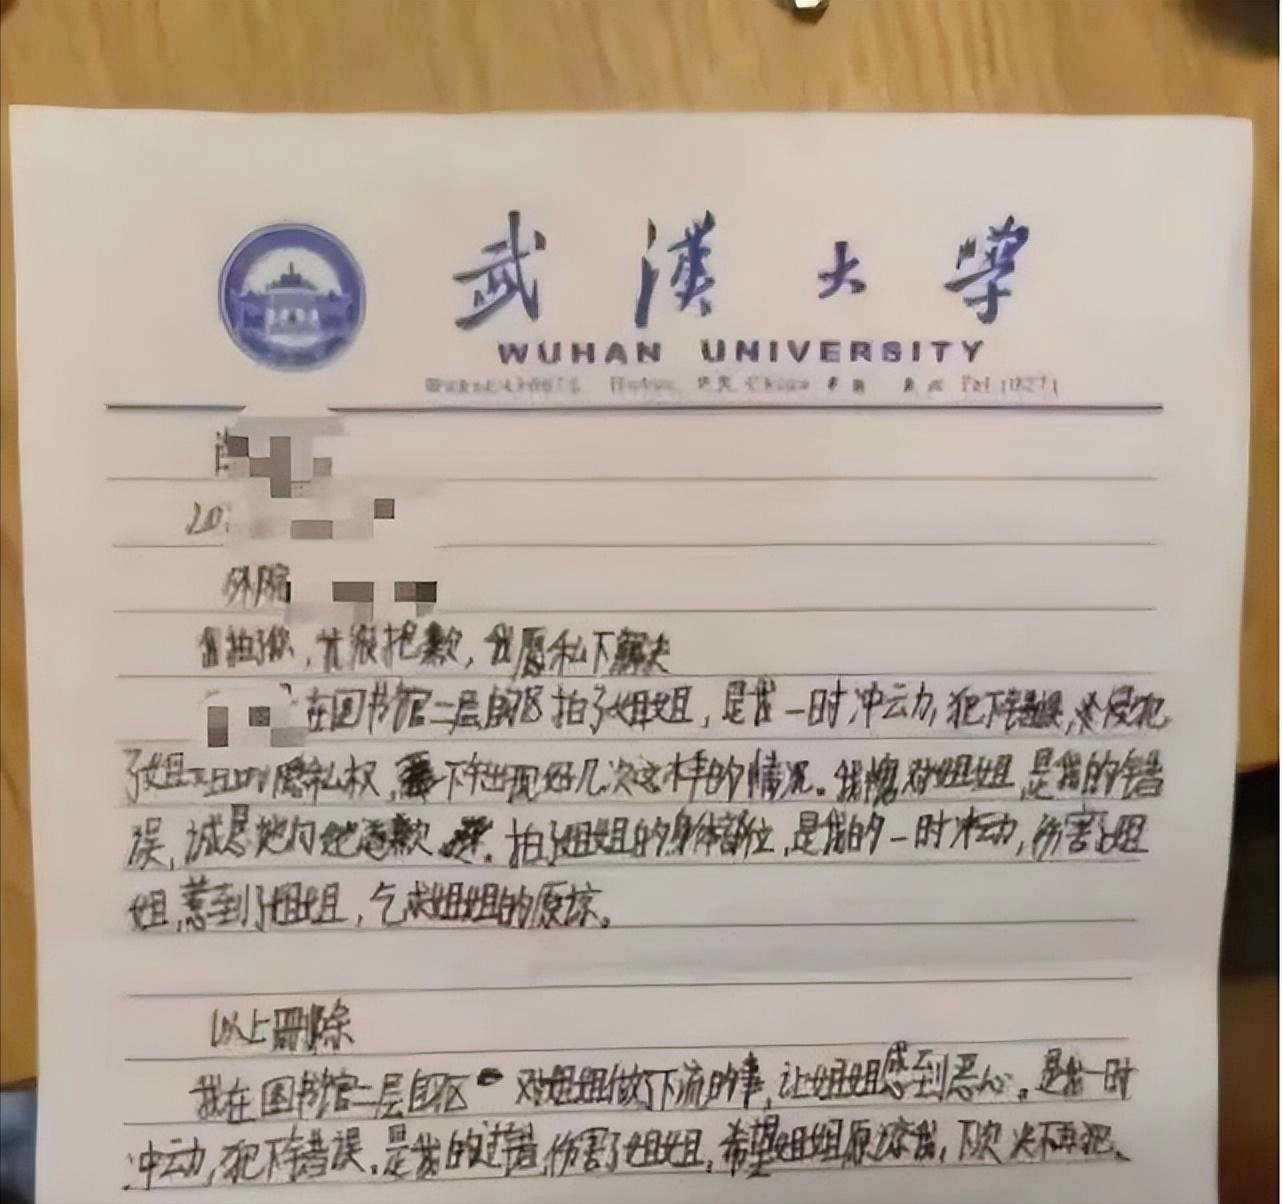 武漢大學
WUHAN UNIVERSITY
外院
，我愿私下解决
在图书馆二层自习区拍了姐姐，是我一时冲动，犯下错误，侵犯
了姐姐的隐私权，下出现好几次这样的情况。我愧对姐姐，是我的错
误，诚恳地向她道歉。拍了姐姐的身体部位，是我的一时冲动，伤害了姐
姐，惹到了姐姐，乞求姐姐的原谅。
以上删除
我在图书馆二层自区对姐姐做了下流的事，让姐姐感到恶心。是我一时
冲动，犯下错误，是我的过错，伤害了姐姐，希望姐姐原谅我，下次决不再犯。